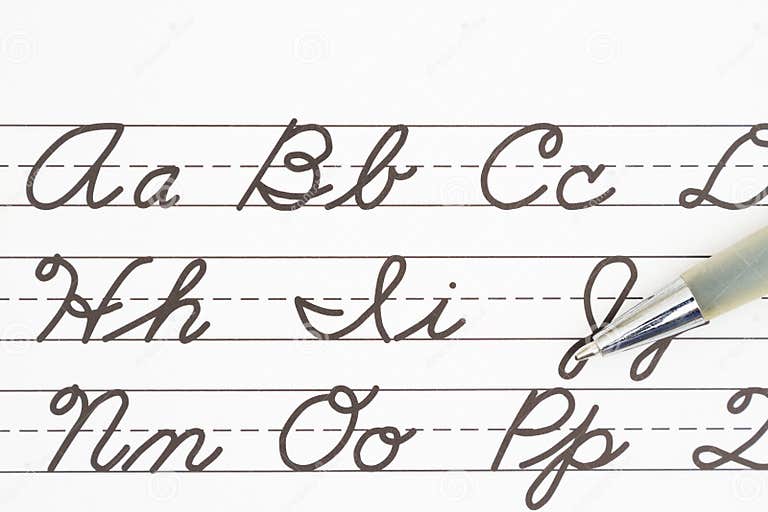 Aa Bb Cc D
Hh Ii Jj
Nn Oo Pp Q